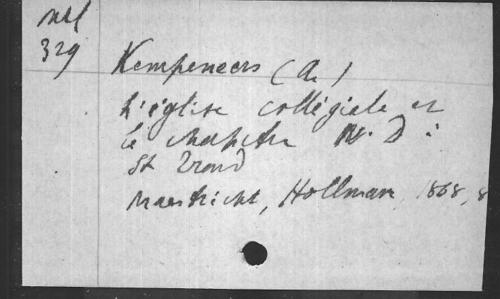 329
Kempeneers (A.)
L'église collégiale et
le chapitre N. D. à
St Trond
Maestricht, Hollman, 1868, 8